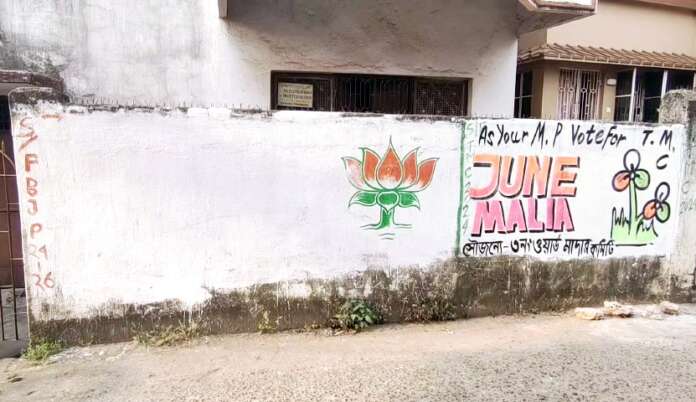 S/F
BJP
21
26
As Your M.P Vote for T.M.
C
JUNE
MALIA
সৌজন্যে - ৩নং ওয়ার্ড মাদার কমিটি